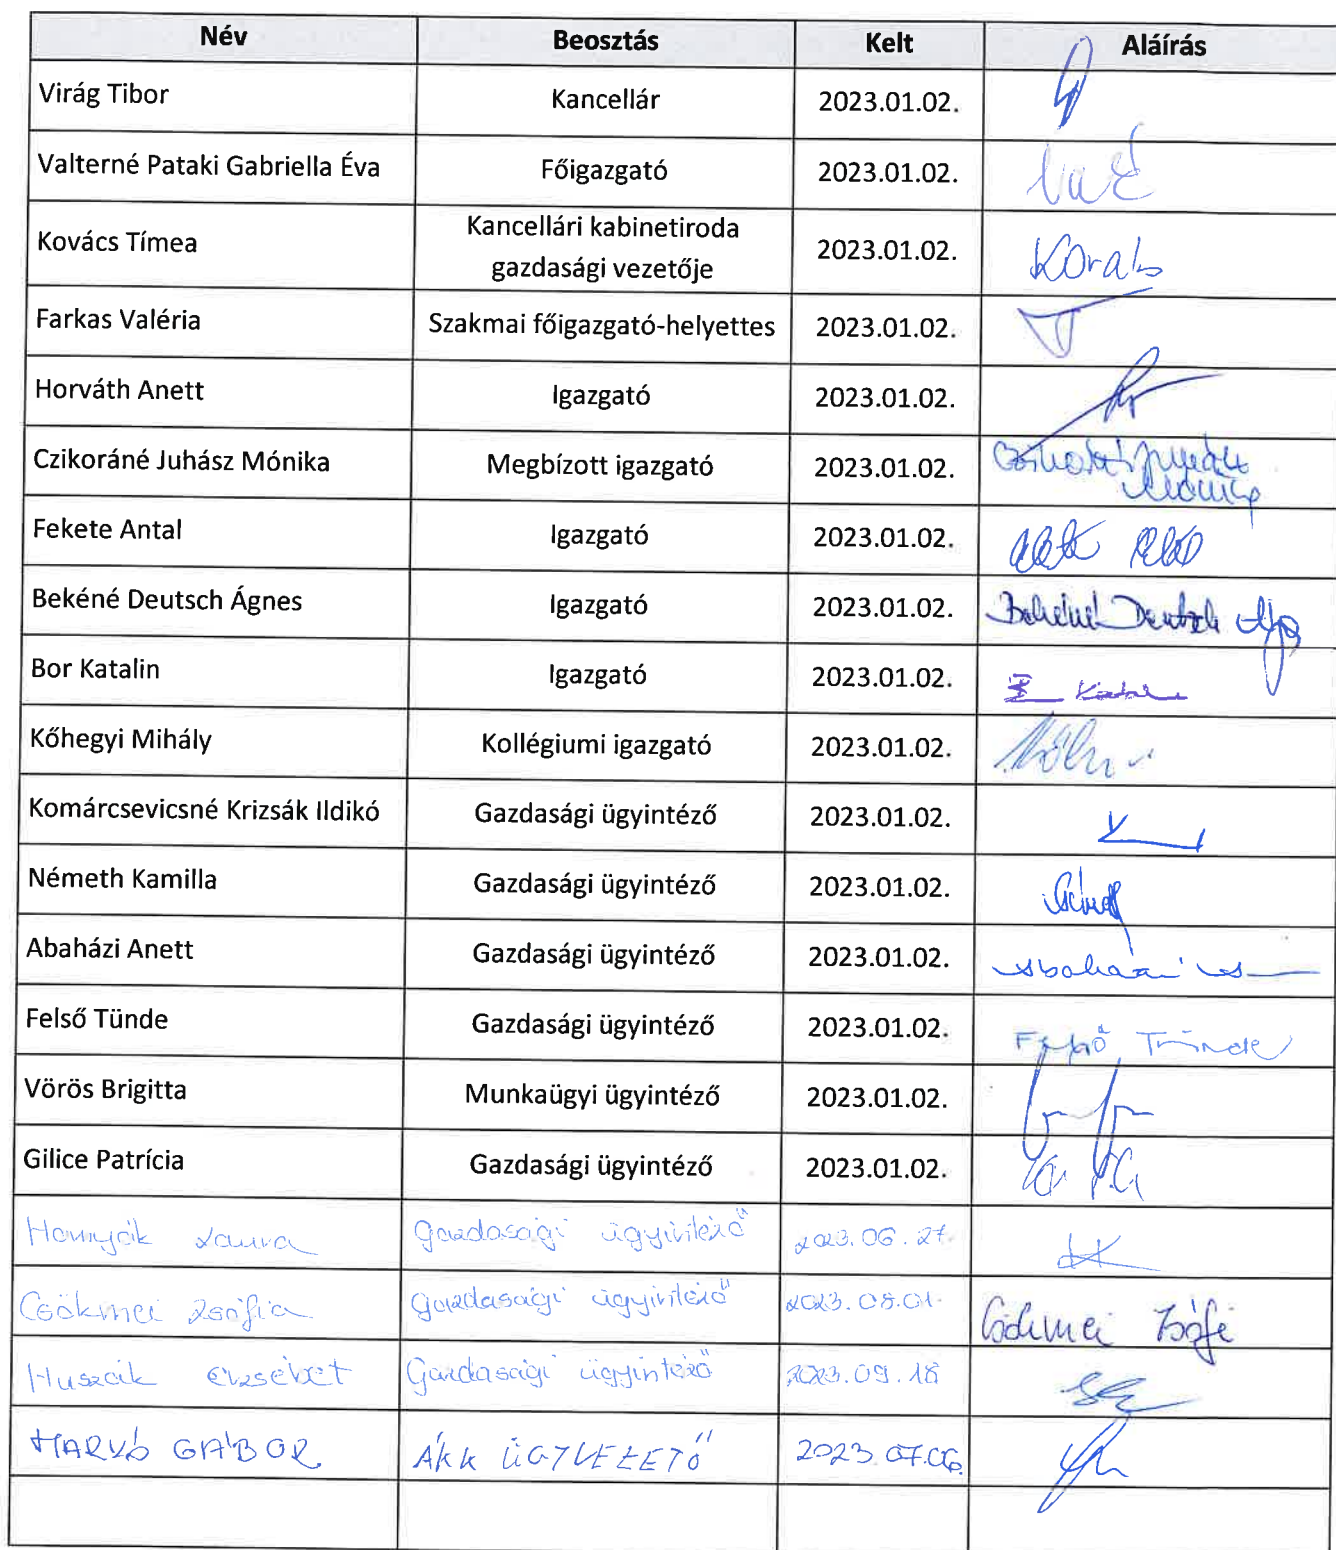 Név Beosztás Kelt Aláírás
Virág Tibor Kancellár 2023.01.02.
Valterné Pataki Gabriella Éva Főigazgató 2023.01.02.
Kovács Tímea Kancellári kabinetiroda gazdasági vezetője 2023.01.02.
Farkas Valéria Szakmai főigazgató-helyettes 2023.01.02.
Horváth Anett Igazgató 2023.01.02.
Czikoráné Juhász Mónika Megbízott igazgató 2023.01.02.
Fekete Antal Igazgató 2023.01.02.
Bekéné Deutsch Ágnes Igazgató 2023.01.02. Bekéné Deutsch
Bor Katalin Igazgató 2023.01.02.
Kőhegyi Mihály Kollégiumi igazgató 2023.01.02.
Komárcsevicsné Krizsák Ildikó Gazdasági ügyintéző 2023.01.02.
Németh Kamilla Gazdasági ügyintéző 2023.01.02.
Abaházi Anett Gazdasági ügyintéző 2023.01.02.
Felső Tünde Gazdasági ügyintéző 2023.01.02. Felső Tünde
Vörös Brigitta Munkaügyi ügyintéző 2023.01.02.
Gilice Patrícia Gazdasági ügyintéző 2023.01.02.
Hornyák Laura Gazdasági ügyintéző 2023.06.27.
Csökmei Zsófia Gazdasági ügyintéző 2023.08.01. Csökmei Zsófi
Huszák Erzsébet Gazdasági ügyintéző 2023.09.18
GÁBOR ÁKK ÜGYVEZETŐ 2023.07.06.